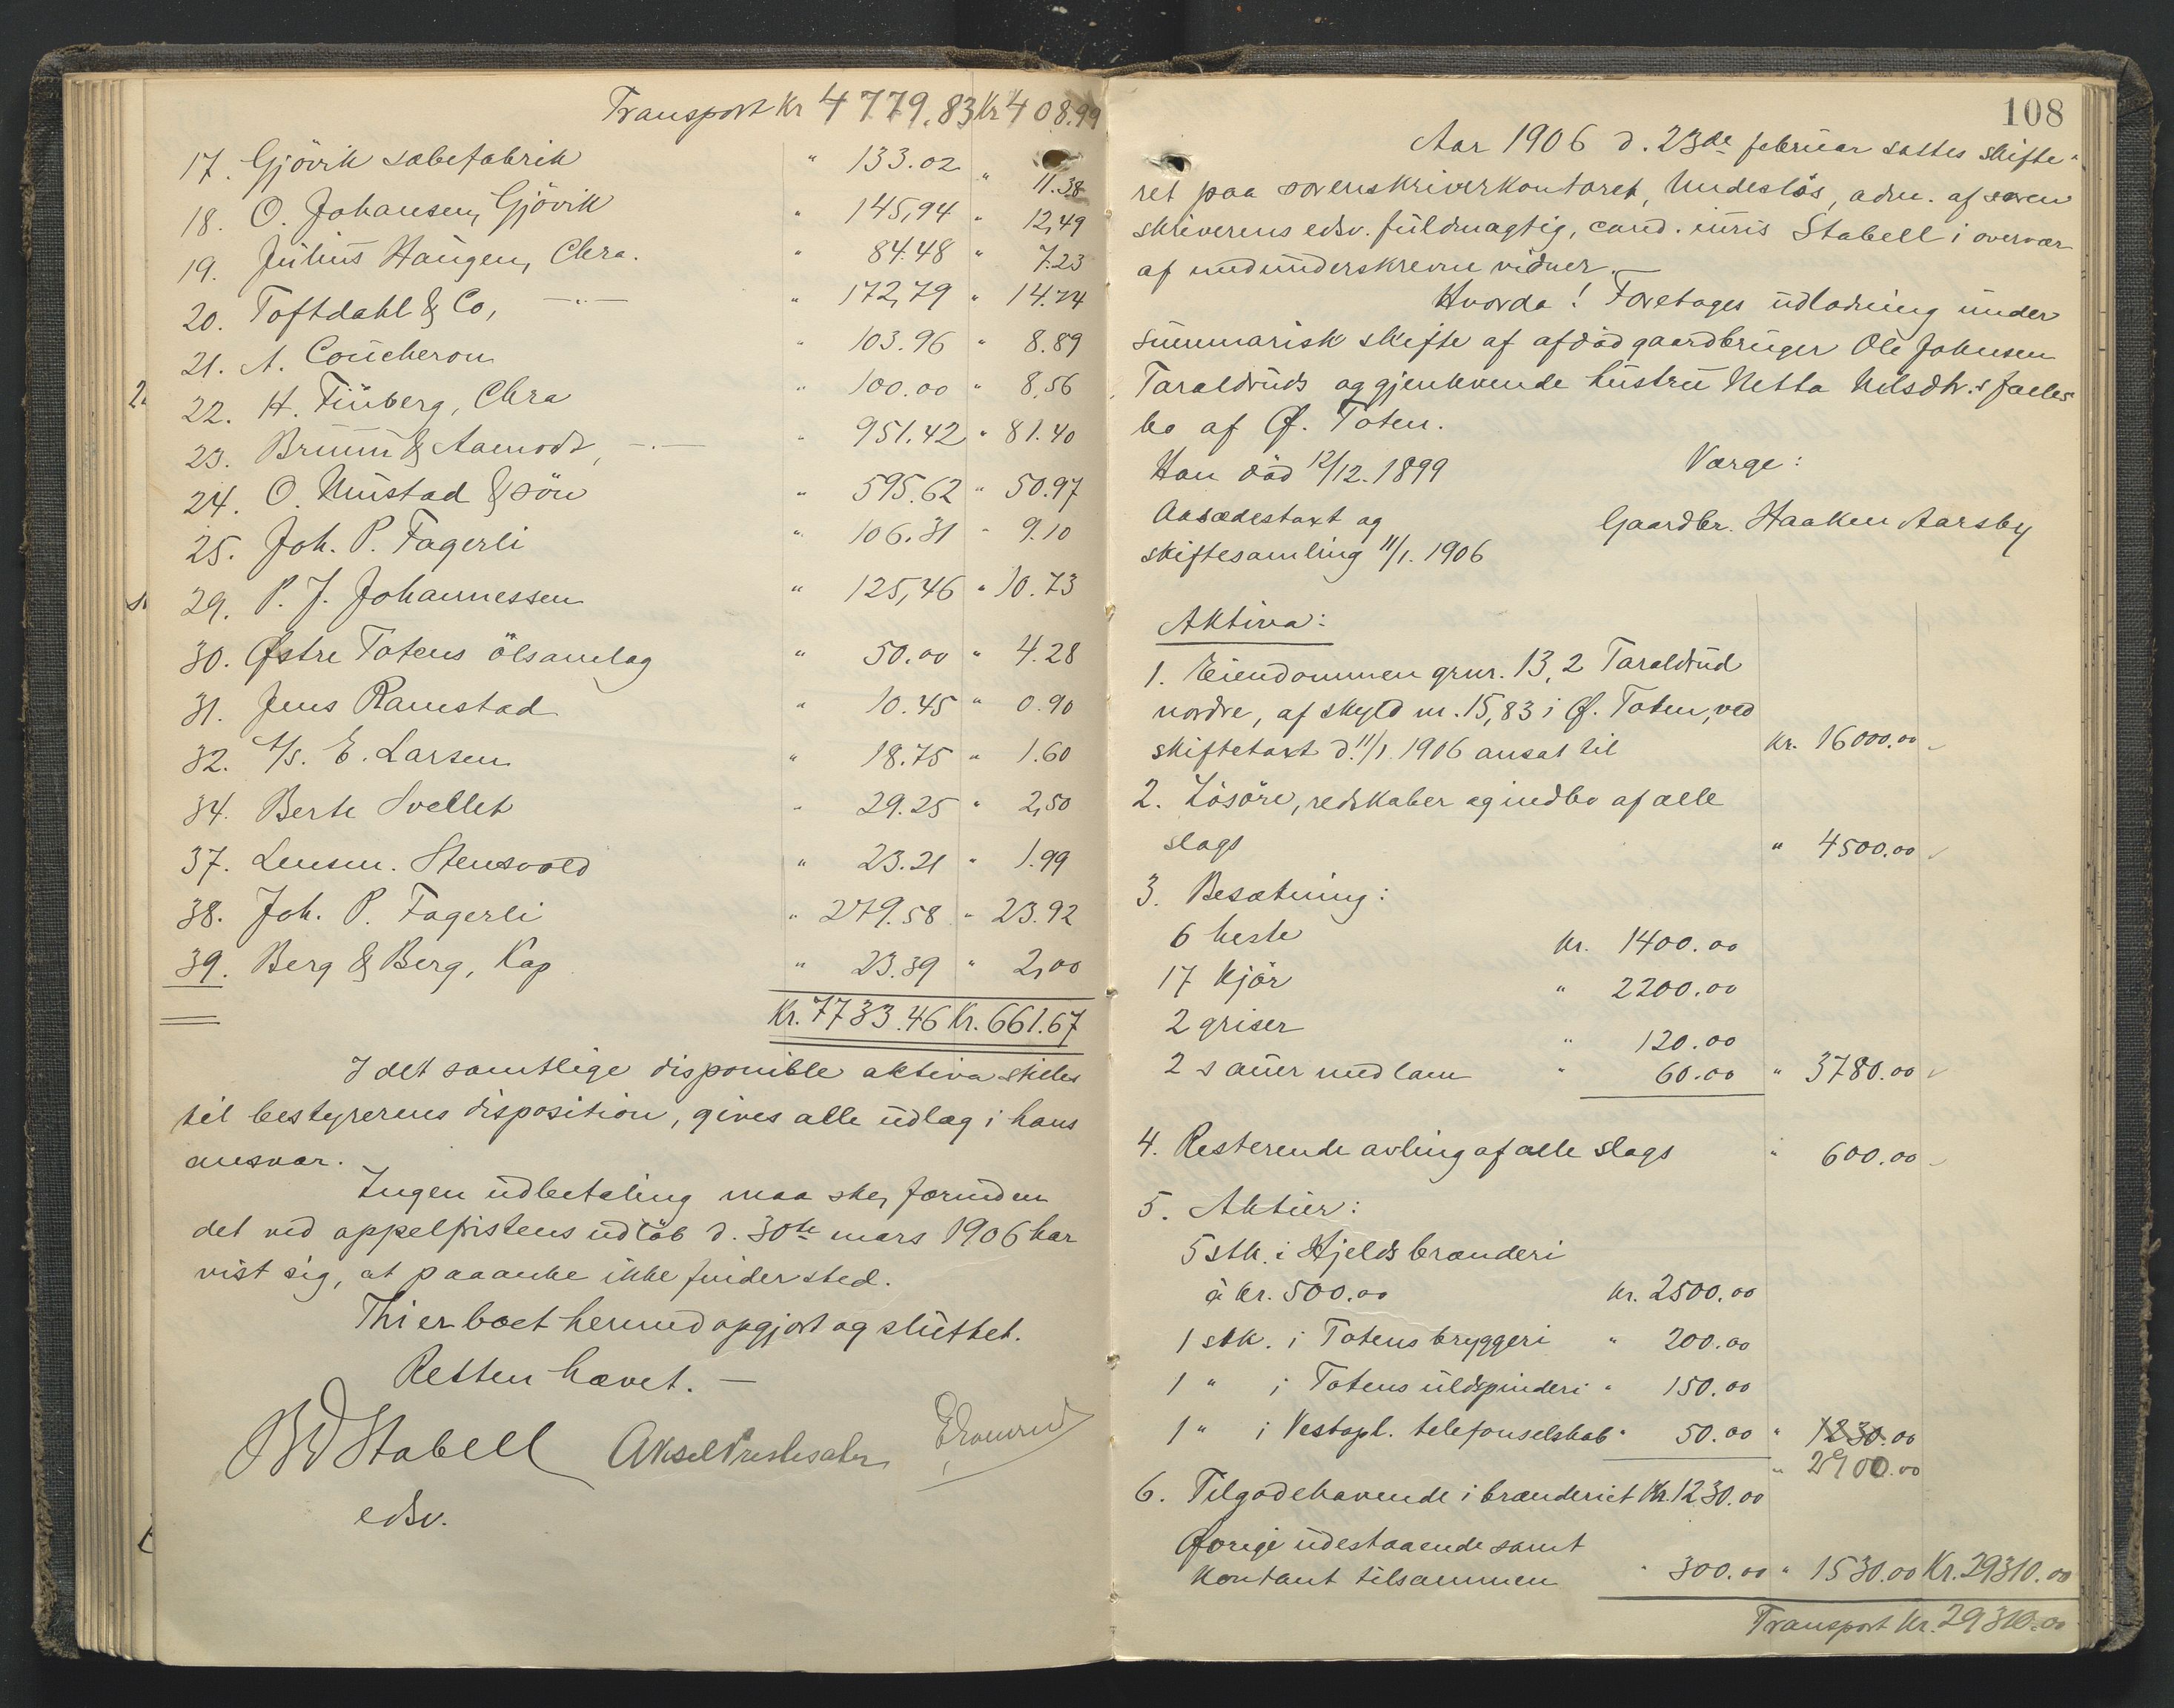 Transport Kr 4779.83 Kr 408.99
17. Gjövik sæbefabrik " 133.02 " 11.38
18. O. Johansen, Gjövik " 145,94 " 12,49
19. Julius Haugen, Chra. " 84.48 " 7.23
20. Toftdahl & Co, —"— " 172,79 " 14.74
21. A. Coucheron " 103.96 " 8.89
22. H. Finberg, Chra " 100.00 " 8,56
23. Bruun & Aamodt, —"— " 951.42 " 81.40
24. O. Mustad & sön " 595.62 " 50.97
25. Joh. P. Fagerli " 106.31 " 9.10
29. P. J. Johannessen " 125,46 " 10.73
30. Østre Totens ölsamlag " 50.00 " 4.28
31. Jens Ramstad " 10.45 " 0.90
32. A/S. E. Larsen " 18.75 " 1.60
34. Berte Svellet " 29.25 " 2,50
37. Lensm. Stensvold " 23.21 " 1.99
38. Joh. P. Fagerli " 279.58 " 23.92
39. Berg & Berg, Kap " 23.39 " 2,00
Kr. 7733.46 Kr. 661.67
I det samtlige disponible aktiva stilles
til bestyrerens disposition, gives alle udlæg i hans
ansvar.
Ingen udbetaling maa ske, forinden
det ved appelfristens udløb d. 30te mars 1906 har
vist sig, at paaanke ikke finder sted.
Thi er boet hermed opgjort og sluttet.
Retten hævet. —
Stabell
edsv.
108
Aar 1906 d. 23de februar sattes skifte-
ret paa sorenskriverkontoret, Undeslös, adm. af soren
skriverens edsv. fuldmægtig, cand. iuris Stabell i overvær
af medunderskrevne vidner. —
Hvorda! Foretages udlodning under
summarisk skifte af afdöd gaardbruger Ole Johnsen
Taraldruds og gjenlevende hustru Netta Nilsdtr.s fælles
bo af Ø. Toten.
Han död 12/12. 1899
Værge:
Aasædestaxt og
skiftesamling 11/1. 1906
Gaardbr. Haaken Aarsby
Aktiva:
1. Eiendommen grnr. 13,2 Taraldrud
nordre, af skyld m. 15,83 i Ø. Toten, ved
skiftetaxt d. 11/1. 1906 ansat til Kr. 16000.00
2. Lösöre, redskaber og indbo af alle
slags " 4500.00
3. Besætning:
6 heste Kr. 1400.00
17 kjör " 2200.00
2 griser " 120.00
2 sauer med lam " 60.00 " 3780.00
4. Resterende avling af alle slags " 600.00
5. Aktier:
5 stk. i Hjelds brænderi
à kr. 500.00 Kr. 2500.00
1 stk. i Totens bryggeri " 200.00
1 " i Totens uldspinderi " 150.00
1 " i Vestopl. telefonselskab " 50.00 " 1230.00
" 2900.00
6. Tilgodehavende i brænderiet Kr. 1230.00
Øvrige udestaaende samt
kontant tilsammen " 300.00 " 1530.00 Kr. 29310.00
Transport Kr. 29310.00